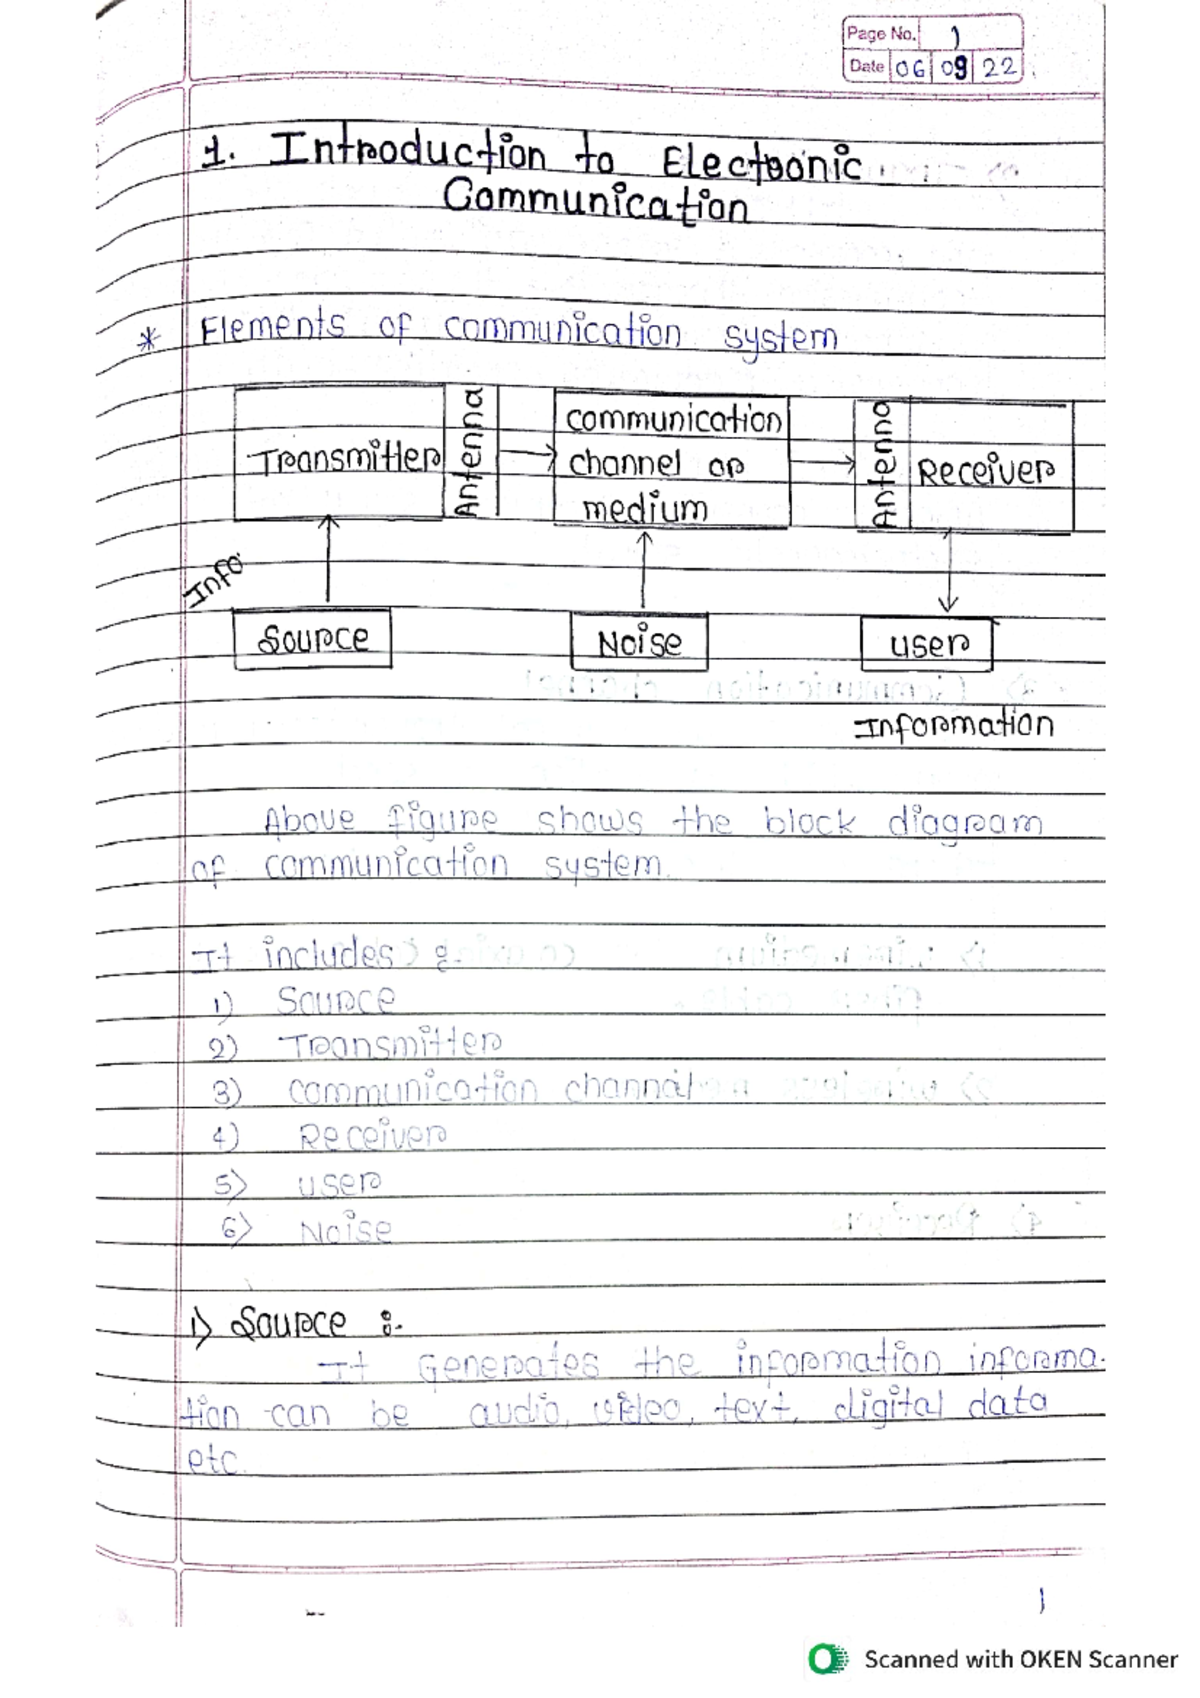 Page No. 1
Date 06 09 22
1. Introduction to Electronic
Communication
* Elements of communication system
Transmitter Antenna
communication
channel or
medium
Antenna Receiver
Info
Source
Noise
user
Information
Above figure shows the block diagram
of communication system.
It includes :-
1) Source
2) Transmitter
3) communication channal
4) Receiver
5) user
6) Noise
1) Source :-
It Generates the information informa-
tion can be audio, video, text, digital data
etc.
1
Scanned with OKEN Scanner